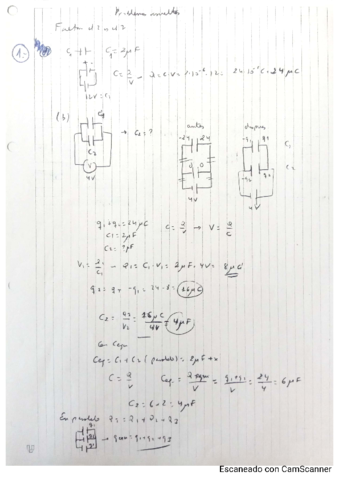 Problemas resueltos
1-
C₁ C₁ = 2μF
C = q/v → q = C·V = 2·10⁻⁶·12 = 24·10⁻⁶ C = 24 μC
12V = ε₁
(b) C₁ → C₂ = ?
C₂
V
4V
antes después
-24 24 -q₁ q₁ C₁
0 0 -q₂ q₂ C₂
4V 4V
q₁+q₂ = 24μC C = q/v → V = q/C
C₁ = 2μF
C₂ = ?μF
V₁ = q₁/C₁ → q₁ = C₁·V₁ = 2μF·4V = 8μC
q₂ = q₁ - q₁ = 24-8 = 16μC
C₂ = q₂/V₂ = 16μC/4V = 4μF
Con Cequi
Ceq = C₁ + C₂ (paralelo) = 2μF + x
C = q/v Ceq = qequi/V = q₁+q₂/V = 24/4 = 6μF
C₂ = 6-2 = 4μF
En paralelo q₁ = q₁ + q₂ + q₃
→ qequi = q₁+q₂+q₃
Escaneado con CamScanner